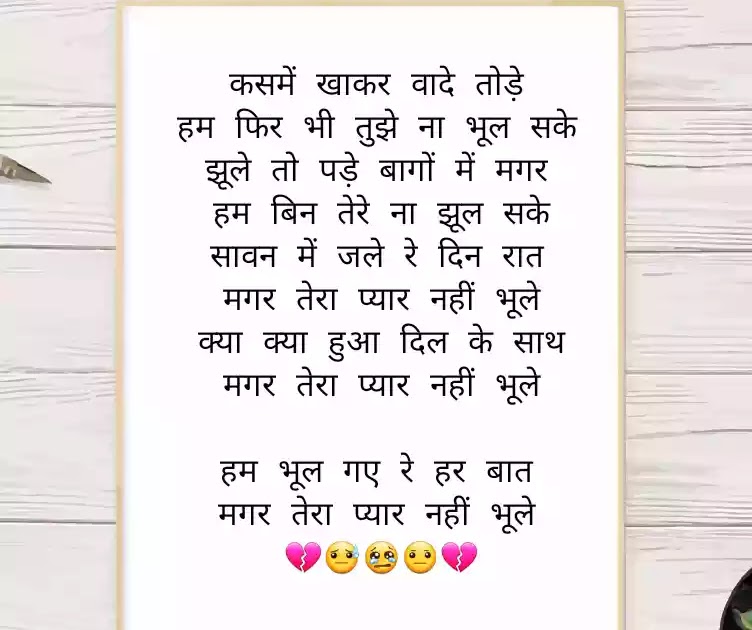 कसमें खाकर वादे तोड़े
हम फिर भी तुझे ना भूल सके
झूले तो पड़े बागों में मगर
हम बिन तेरे ना झूल सके
सावन में जले रे दिन रात
मगर तेरा प्यार नहीं भूले
क्या क्या हुआ दिल के साथ
मगर तेरा प्यार नहीं भूले
हम भूल गए रे हर बात
मगर तेरा प्यार नहीं भूले
💔😓😢😐💔